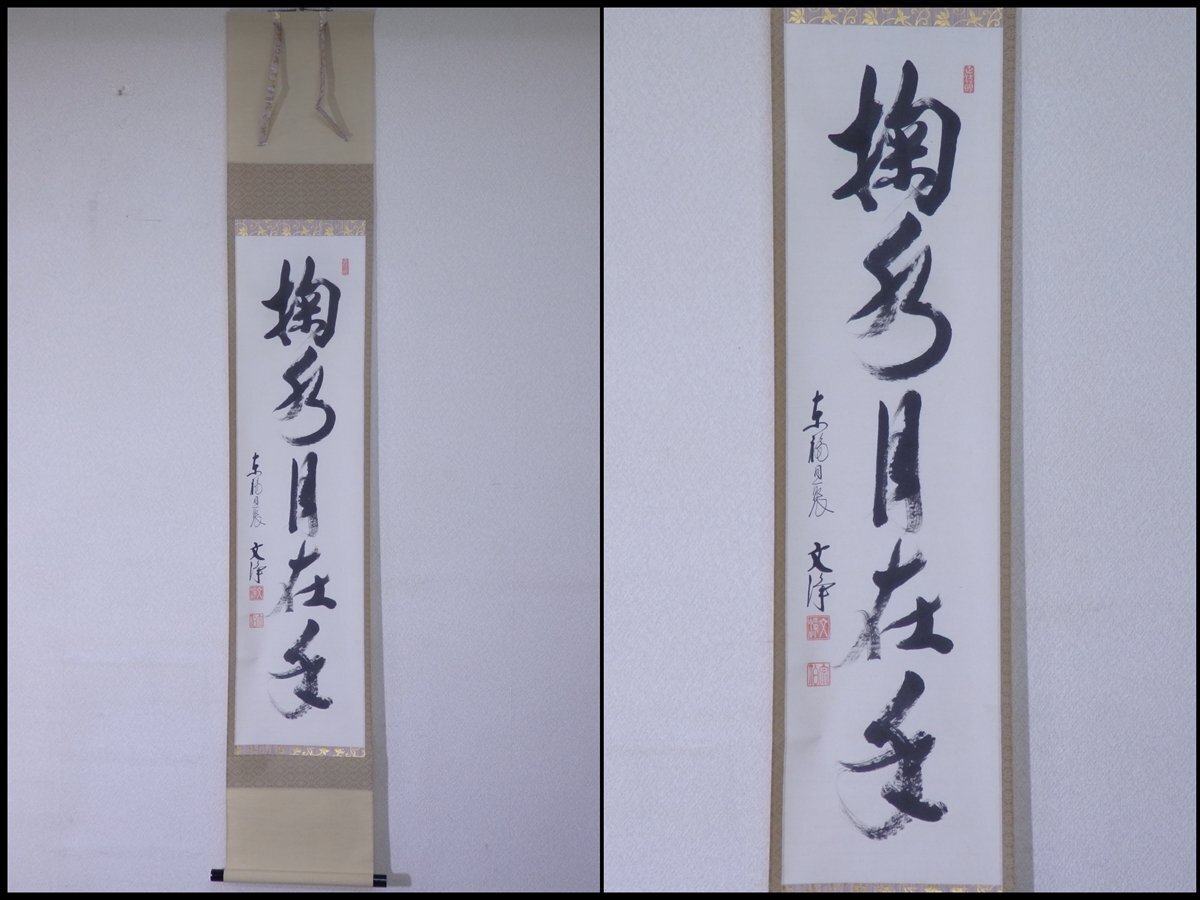 掬水月在手
東福
文浄
掬水月在手
東福
文浄